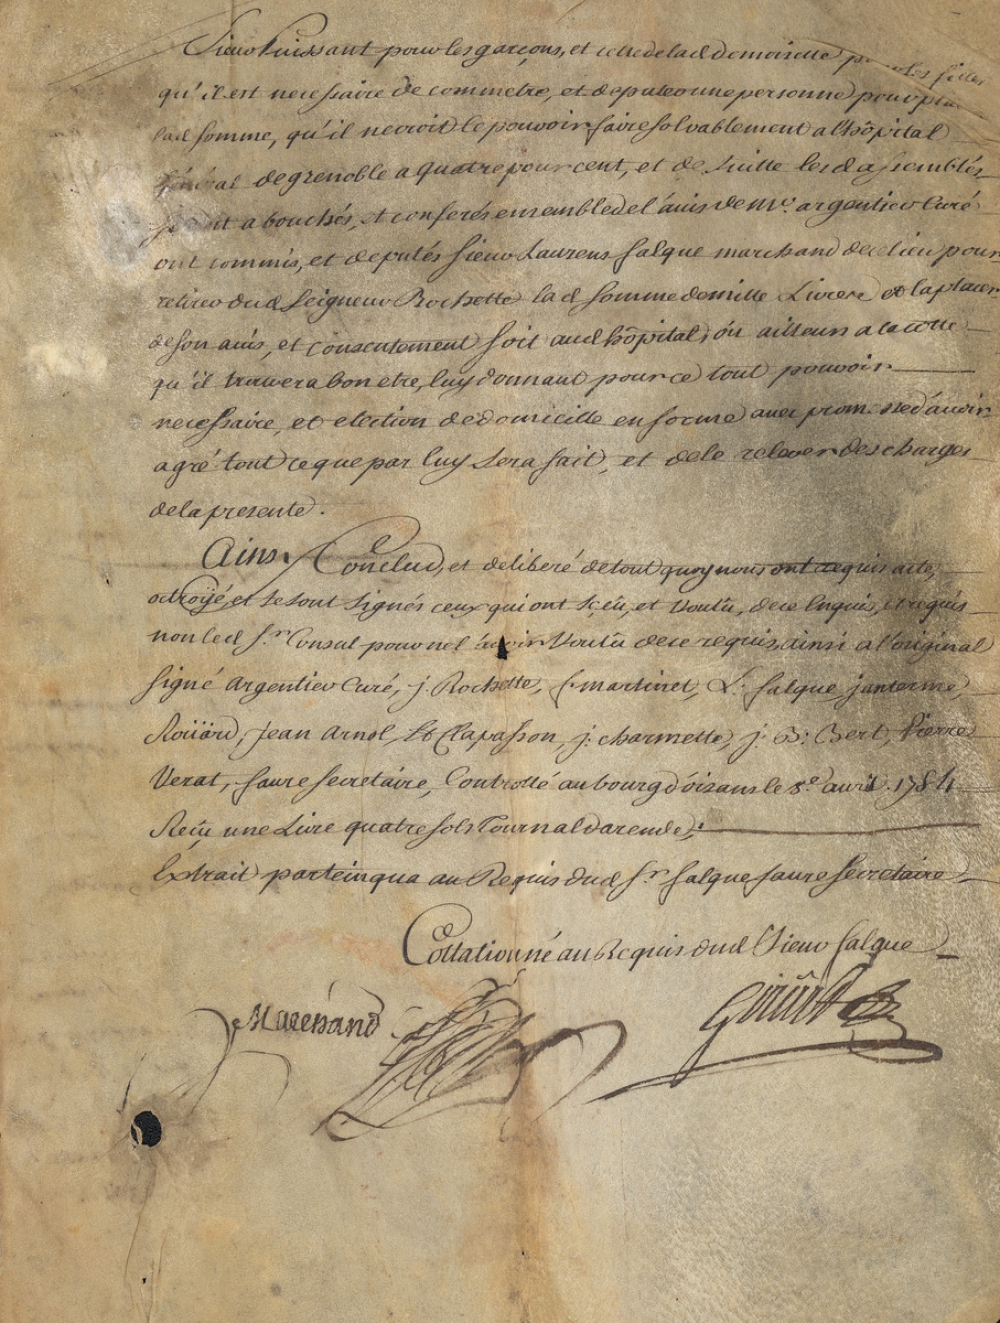 Sieur Puissant pour les garçons, et cette de lad demoiselle les filles
qu'il est necessaire de commetre, et deputer une personne pour
lad somme, qu'il ne croit le pouvoir faire solvablement a l'hôpital
général de grenoble a quatre pour cent, et de suitte lesd assemblés
abouchés, et conferés ensemble de l'avis de Mre argentier Curé
ont commis, et deputés sieur Laurens falque marchand de ce lieu pour
retirer dud seigneur Rochette lad somme de mille Livres et la placer
de son avis, et consentement soit aud hôpital, ou ailleurs a la cotte
qu'il trouvera bon etre, luy donnant pour ce tout pouvoir
necessaire, et election de domicille en forme avec promesse d'avoir
agré tout ce que par luy sera fait, et de le relever des charges
de la presente.
Ainsy Conclud, et deliberé de tout quoy nous ont requis acte,
octroyé, et se sont signés ceux qui ont sçeû, et voulû, de ce Enquis, et requis
non led sr Consul pour ne l'avoir voulû de ce requis, ainsi a l'original
signé argentier Curé, j. Rochette, f. martinet, L. falque, janterme,
Roüard, jean arnol, Clapasson, j. charmette, j. B. Bert, Pierre
Verat, faure secretaire, Controllé au bourg d'oizans le 8e avril 1754
Reçu une Livre quatre sols Tournal darende,
Extrait parteinqua au Requis dud sr falque faure secretaire
Collationné au Requis dud sieur falque
Marchand